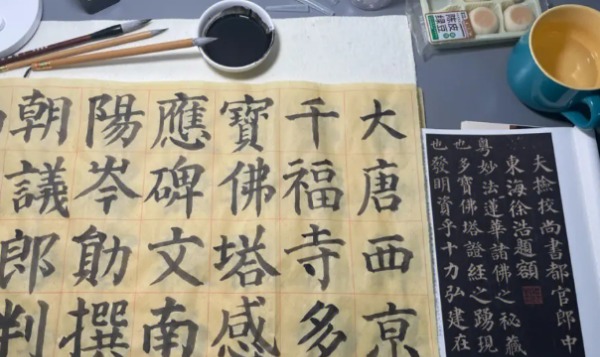 大唐西京
千福寺多
寶佛塔感
應碑文南
陽岑勛撰
朝議郎判
夫撿挍尚書都官郎中
東海徐浩題額
粵妙法蓮華諸佛之秘藏
也多寶佛塔證經之踴現
也發明資乎十力弘建在